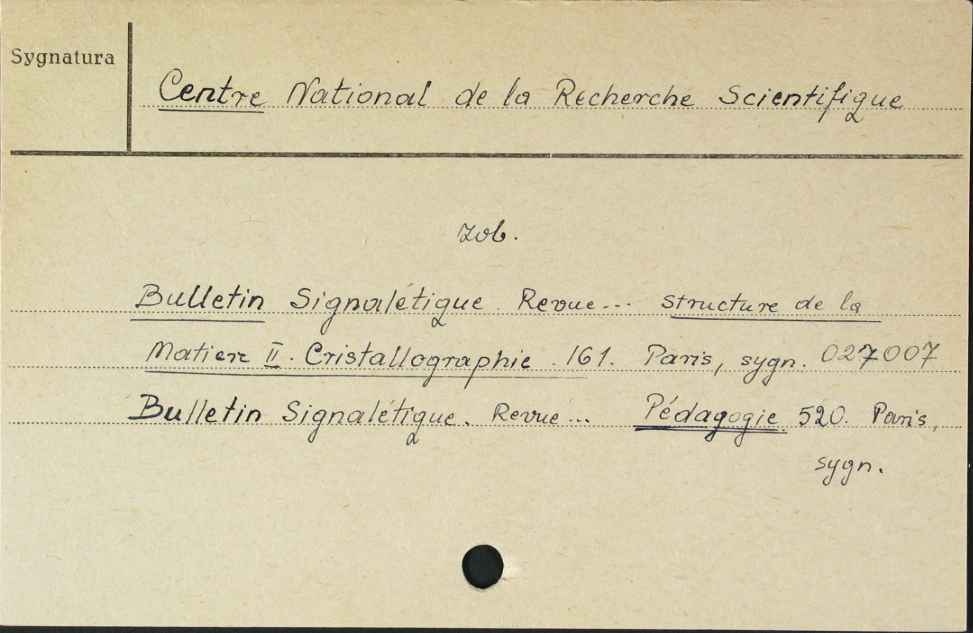 Sygnatura
Centre National de la Recherche Scientifique
zob.
Bulletin Signalétique Revue... structure de la
Matiere II. Cristallographie . 161. Paris, sygn. 027007
Bulletin Signalétique. Revue... Pédagogie 520. Paris,
sygn.